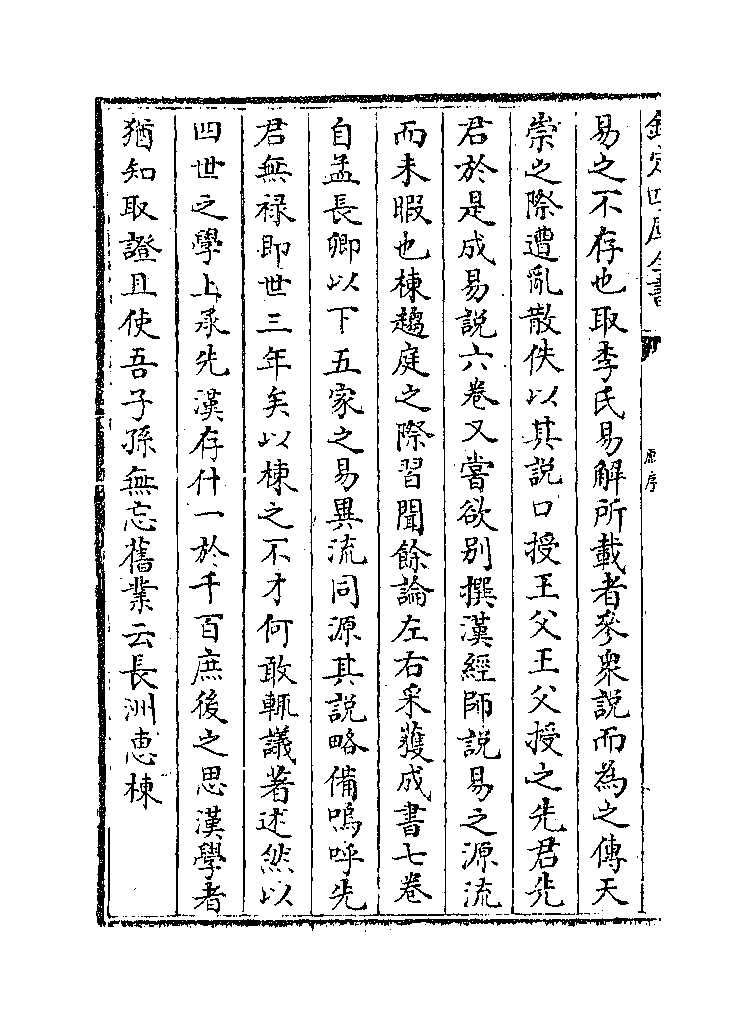 欽定四庫全書
原序
易之不存也取李氏易解所載者參衆說而為之傳天
崇之際遭亂散佚以其說口授王父王父授之先君先
君於是成易說六卷又嘗欲別撰漢經師說易之源流
而未暇也棟趨庭之際習聞餘論左右采獲成書七卷
自孟長卿以下五家之易異流同源其說略備嗚呼先
君無祿即世三年矣以棟之不才何敢輒議著述然以
四世之學上承先漢存什一於千百庶後之思漢學者
猶知取證且使吾子孫無忘舊業云長洲惠棟